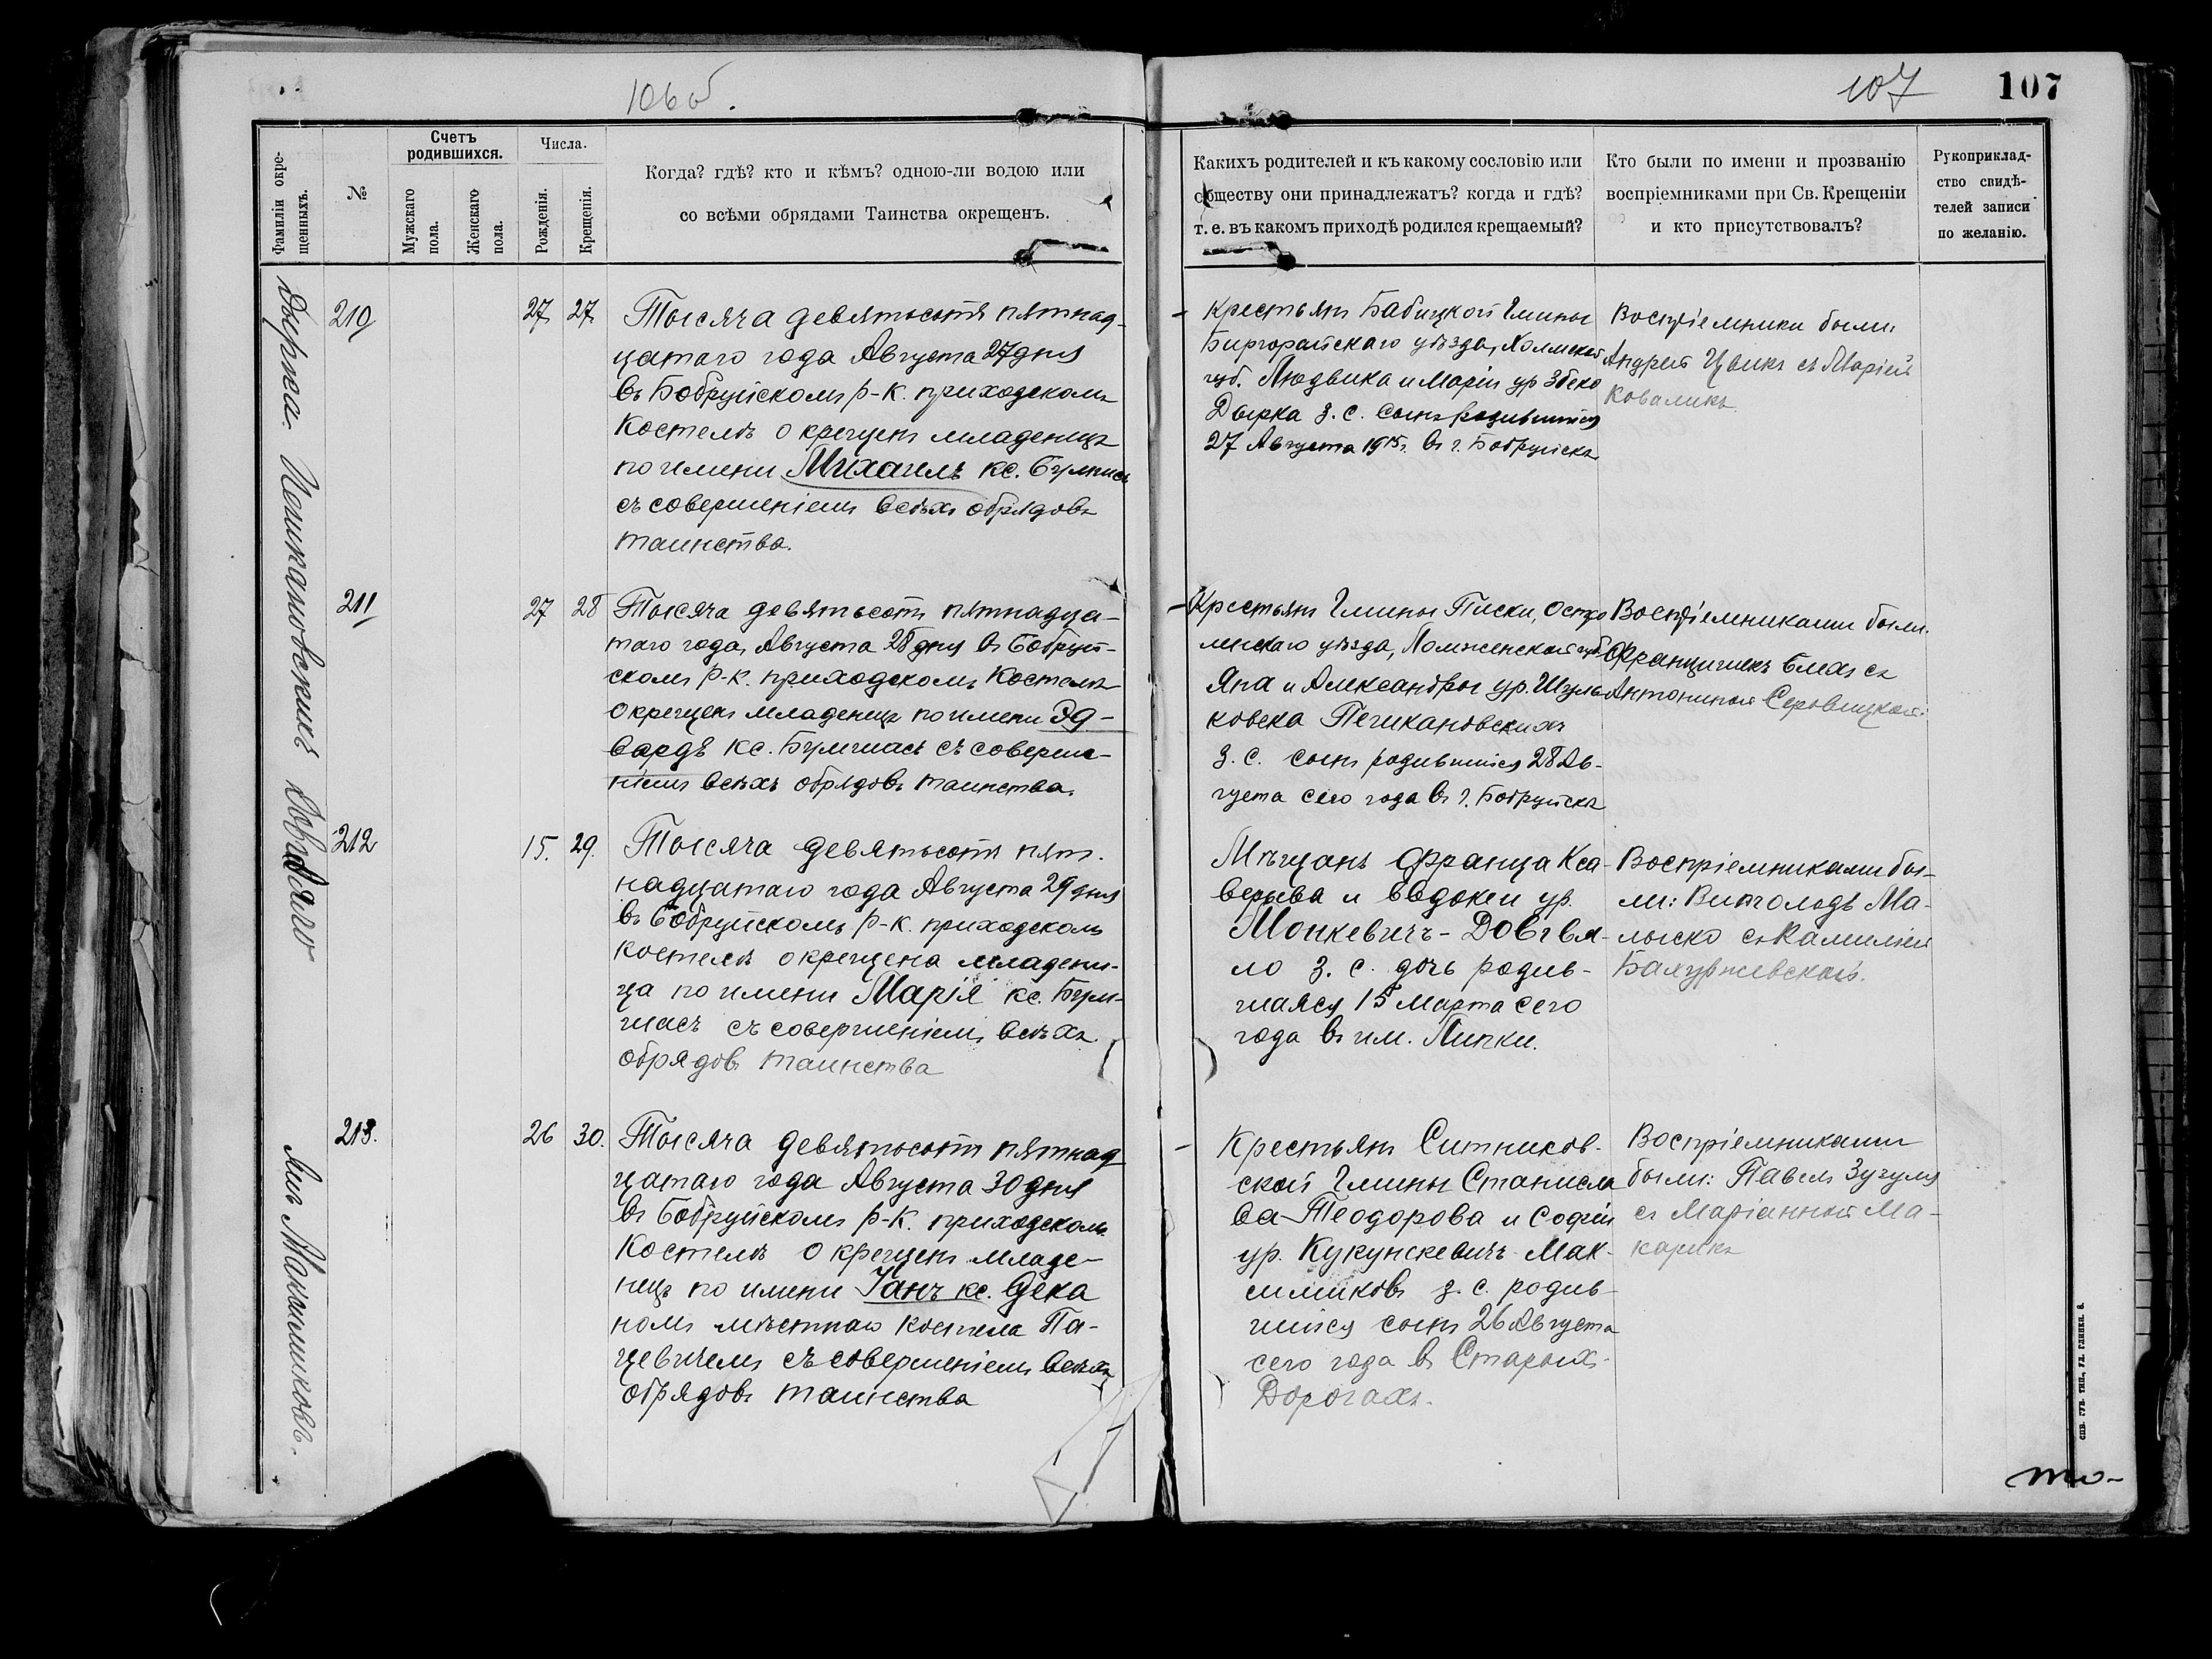 106 об.
107
107
Фамиліи окре-
щенныхъ.
№
Счетъ
родившихся.
Мужскаго
пола.
Женскаго
пола.
Числа.
Рожденія.
Крещенія.
Когда? гдѣ? кто и кѣмъ? одною-ли водою или
со всѣми обрядами Таинства окрещенъ.
Какихъ родителей и къ какому сословію или
обществу они принадлежатъ? когда и гдѣ?
т. е. въ какомъ приходѣ родился крещаемый?
Кто были по имени и прозванію
воспріемниками при Св. Крещеніи
и кто присутствовалъ?
Рукоприклад-
ство свидѣ-
телей записи
по желанію.
Дырка.
210
27
27
Тысяча девятьсотъ пятнад-
цатаго года Августа 27 дня
въ Бобруйскомъ р-к. приходскомъ
Костелѣ окрещенъ младенецъ
по имени Михаилъ кс.
съ совершеніемъ всѣхъ обрядовъ
таинства.
Крестьянъ Бабицкой Гмины
уѣзда, Холмской
губ. Людвика и Маріи ур.
Дырка з. с. сынъ родившійся
27 Августа 1915 г. въ г. Бобруйскѣ
Воспріемники были
Андрей съ Маріей
Коваликъ
211
27
28
Тысяча девятьсотъ пятнадца-
таго года, Августа 28 дня въ Бобруй-
скомъ р-к. приходскомъ Костелѣ
окрещенъ младенецъ по имени Эд-
вардъ кс. Бумшасъ съ соверше-
ніемъ всѣхъ обрядовъ таинства.
Крестьянъ Гмины Писки, Остро
ленскаго уѣзда, Ломженской губ.
Яна и Александры ур. Шуль
Печкановскихъ
з. с. сынъ родившійся 28 Ав-
густа сего года въ г. Бобруйскѣ
Воспріемниками были
Францишекъ съ
Антониной
Довгялло
212
15.
29.
Тысяча девятьсотъ пят-
надцатаго года Августа 29 дня
въ Бобруйскомъ р-к. приходскомъ
костелѣ окрещена младени-
ца по имени Марія кс. Бум-
шасъ съ совершеніемъ всѣхъ
обрядовъ таинства
Мѣщанъ Франца Кса-
верьева и Евдокеи ур.
Монкевичъ-Довгвя-
ло з. с. дочь родив-
шаяся 15 Марта сего
года въ им. Липки.
Воспріемниками бы-
ли: Витольдъ Ма-
лыско съ Камиліей
Янъ Макимиковъ.
213.
26
30.
Тысяча девятьсотъ пятнад
цатаго года Августа 30 дня
въ Бобруйскомъ р-к. приходскомъ
Костелѣ окрещенъ младе-
нецъ по имени Іанъ кс. Дека
номъ мѣстнаго костела Па-
цевичемъ съ совершеніемъ всѣхъ
обрядовъ таинства
Крестьянъ Ситников-
ской Гмины Станисла
ва Теодорова и Софіи
ур. Кукунскевичъ Мак-
симиковъ з. с. родив-
шійся сынъ 26 Августа
сего года въ Старыхъ-
Дорогахъ.
Воспріемниками
были: Павелъ Зугуля
съ Маріанной Ма-
карикъ
то-
СПБ. ГУБ. ТИП., УЛ. ГЛИНКИ. 6.